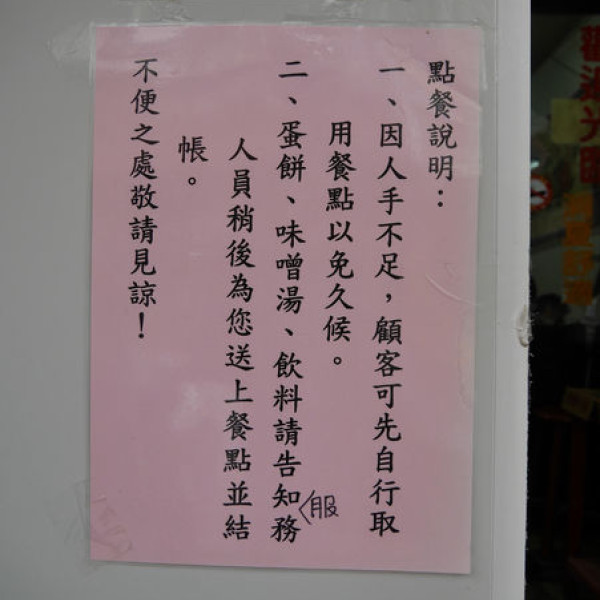 點餐說明：
一、因人手不足，顧客可先自行取
用餐點以免久候。
二、蛋餅、味噌湯、飲料請告知服務
人員稍後為您送上餐點並結
帳。
不便之處敬請見諒！